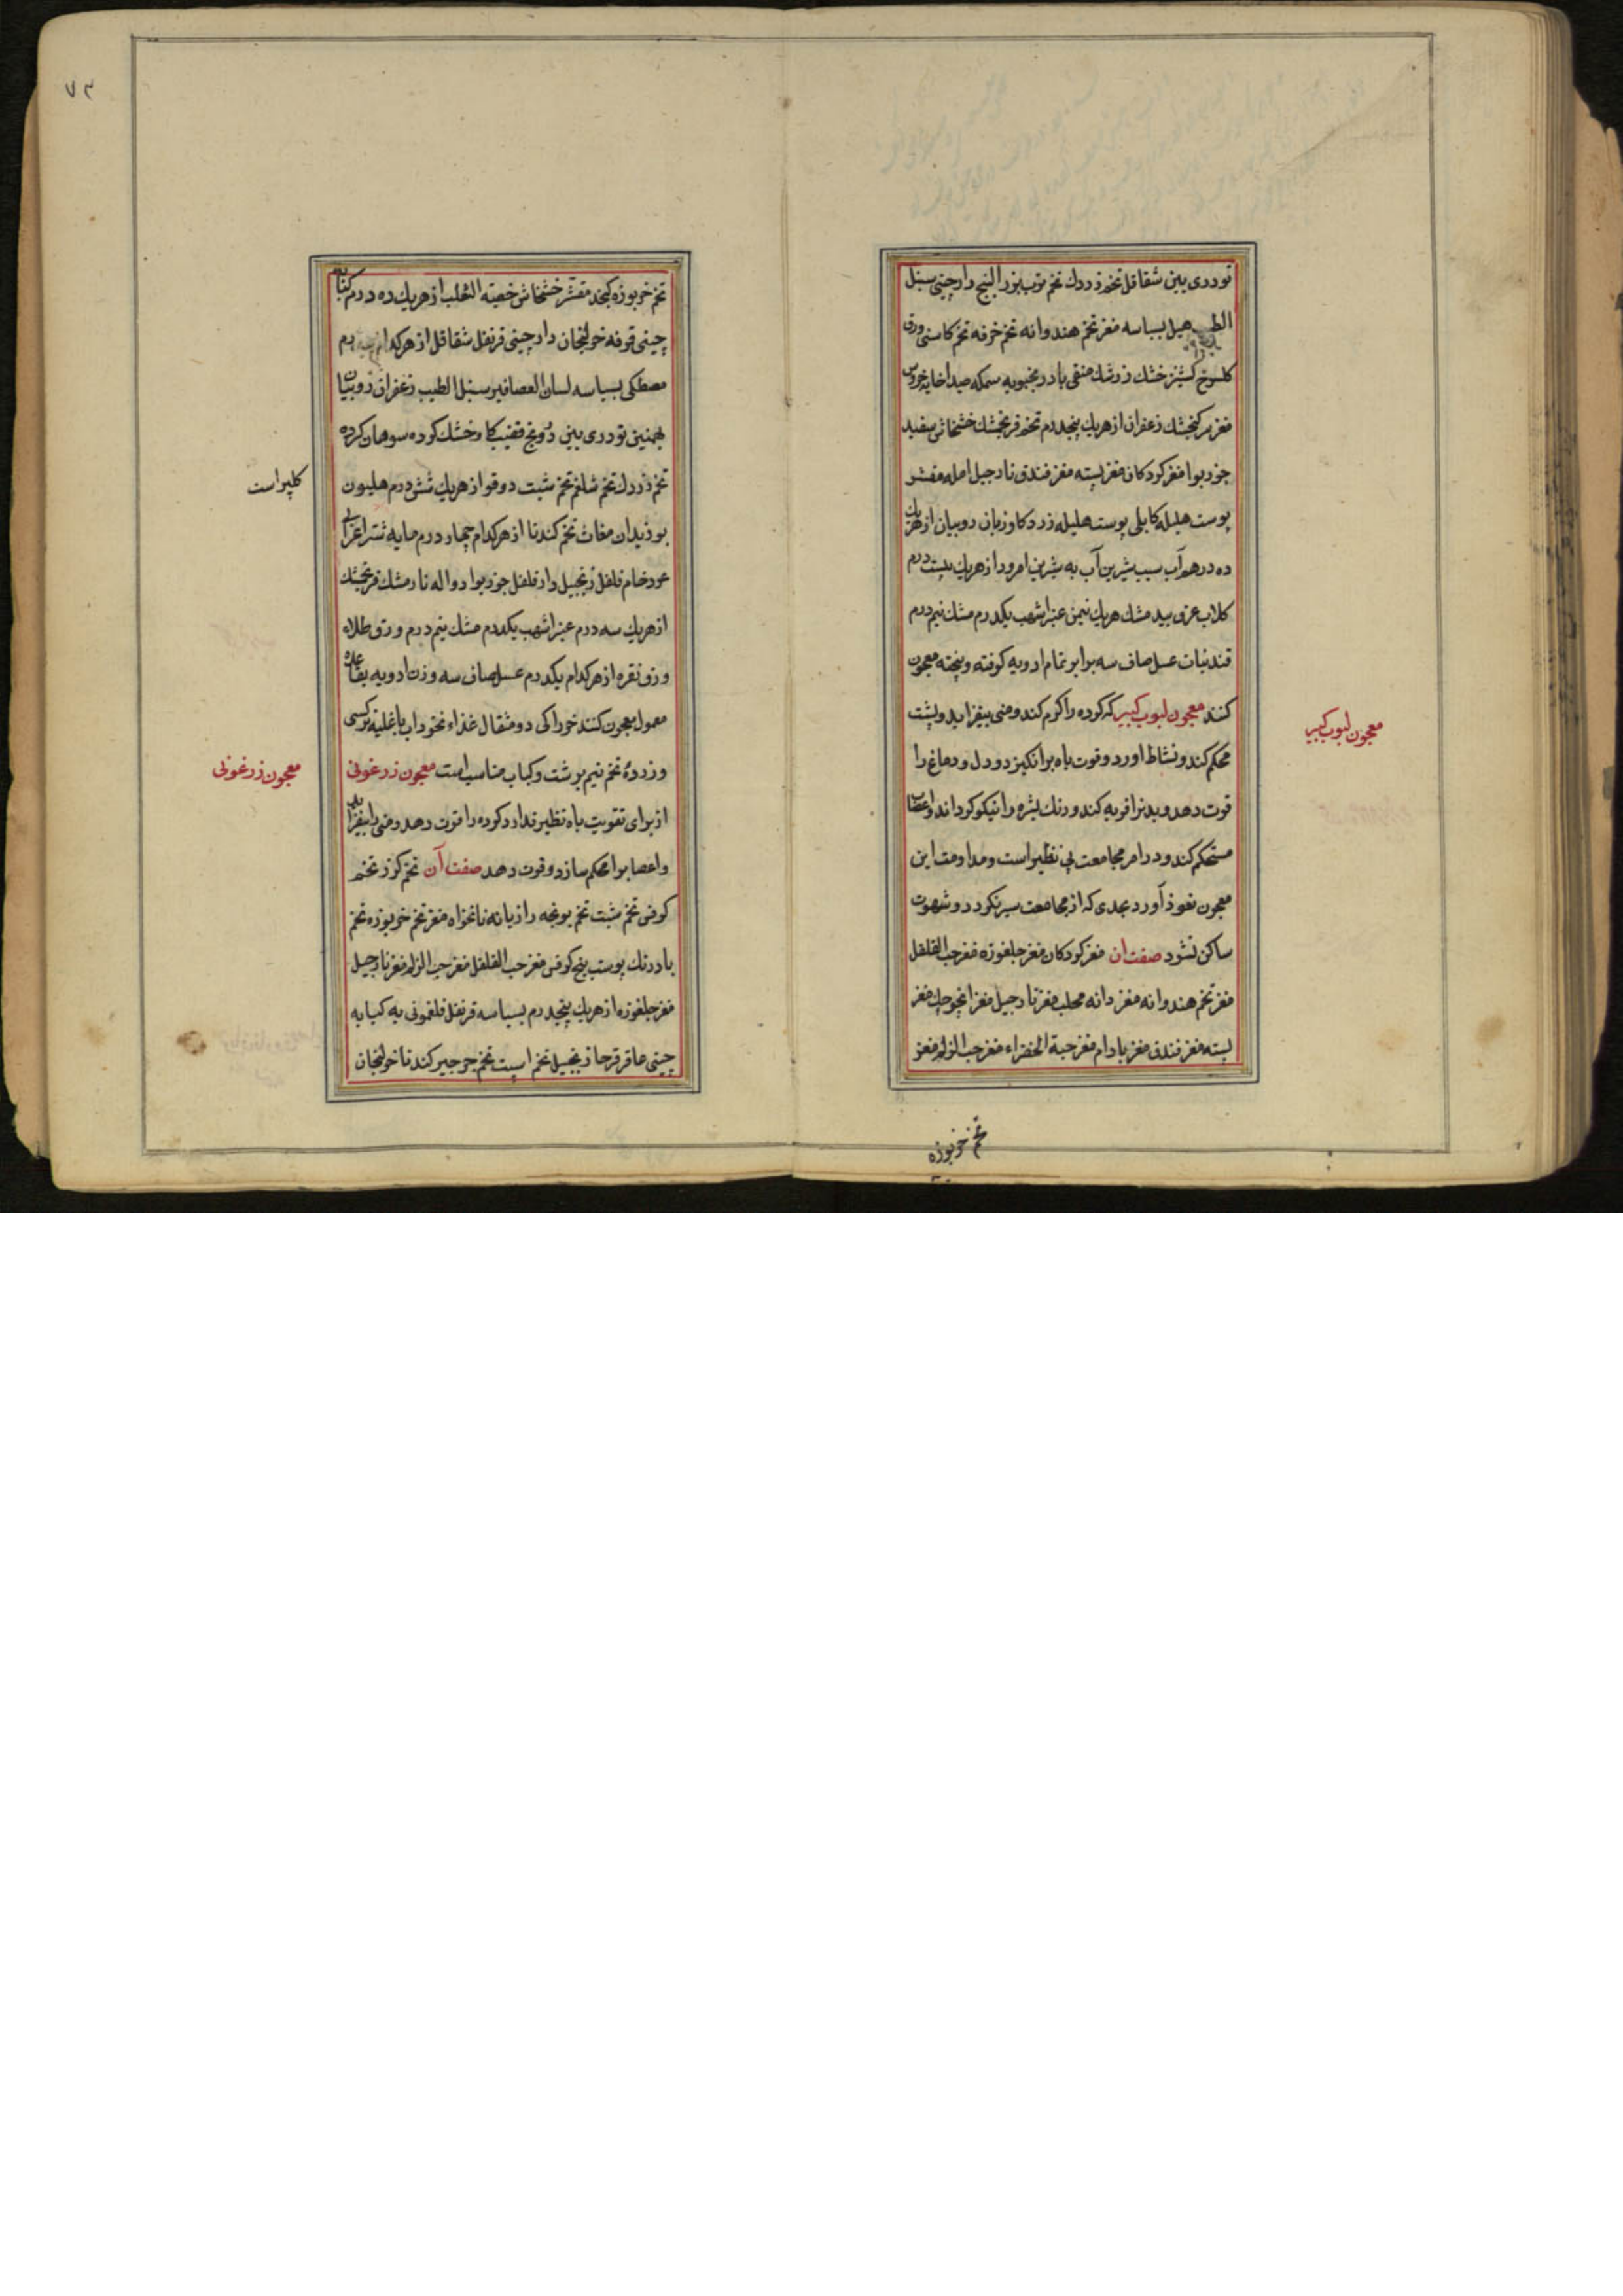 تودری بین شقاقل تخم زردك تخم ترب بزرالبنج دارچینی سنبل
الطیب هیل بسباسه مغز تخم هندوانه تخم خرفه تخم كاسنی ورق
كلسرخ كشنیز خشك زرشك منقی بادرنجبویه سمكه صیدا خایه خروس
مغز سر كنجشك زعفران از هریك پنجدرم تخم فرنجمشك خشخاش سفید
جوزبوا مغز كردكان مغز پسته مغز فندق نارجیل امله مقشر
پوست هلیله كابلی پوست هلیله زرد كاوزبان روبیان از هریك
ده درهم آب سیب شیرین آب به شیرین امرود از هریك بیست درم
كلاب عرق بید مشك هریك نیمن عنبر اشهب یكدرم مشك نیم درم
قند نبات عسل صاف سه برابر تمام ادویه كوفته و پیخته معجون
كنند معجون لبوب كبیر كه كرده را كرم كند و منی بیفزاید و پشت
محكم كند و نشاط اورد و قوت باه برانكیزد و دل و دماغ را
قوت دهد و بدنرا فربه كند و رنك بشره را نیكو كرداند و اعصاب
مستحكم كند و در امر مجامعت بی نظیر است و مداومت این
معجون نعوذ آورد بحدی كه از مجامعت سیر نكردد و شهوت
ساكن نشود صفت ان مغز كردكان مغز جلغوزه مغز حب القلقل
مغز تخم هندوانه مغز دانه محلب مغز نارجیل مغز انچوچك مغز
پسته مغز فندق مغز بادام مغز حبة الخضراء مغز حب الزلم مغز
تخم خربوزه
معجون لبوب كبیر
تخم خربوزه كنجد مقشر خشخاش خصیته الثعلب از هریك ده درم كبابه
چینی قرفه خولنجان دارچینی قرنفل شقاقل از هركدام درم
مصطكی بسباسه لسان العصافیر سنبل الطیب زعفران روبیان
بهمنین تودری بین درونج قضیب كاو خشك كرده سوهان كرده
تخم زردك تخم شلغم تخم شبت دوقو از هریك شش درم هلیون
بوزیدان مغاث تخم كندنا از هركدام چهار درم مایه شتر اعرابی
عود خام فلفل زنجبیل دارفلفل جوزبوا دواله نارمشك فرنجمشك
از هریك سه درم عنبر اشهب یكدرم مشك نیم درم ورق طلاء
ورق نقره از هركدام یكدرم عسل صاف سه وزن ادویه بقاعده
معمول معجون كنند خوراكی دو مثقال غذاء نخوداب با قلیه نركسی
و زردۀ تخم نیم برشت و كباب مناسب است معجون زرغونی
از برای تقویت باه نظیر ندارد كرده را قوت دهد و منی را بیفزاید
و اعصابرا محكم سازد و قوت دهد صفت آن تخم كرز تخم
كرفس تخم شبت تخم یونجه رازیانه نانخواه مغز تخم خربوزه تخم
بادرنك پوست بیخ كرفس مغز حب القلقل مغز حب الزلم مغز نارجیل
مغز جلغوزه از هریك پنجدرم بسباسه قرنفل فلفمونیه كبابه
چینی عاقرقرحا زنجبیل تخم اسپست تخم جرجیر كندنا خولنجان
كلپر است
معجون زرغونی
۷۳